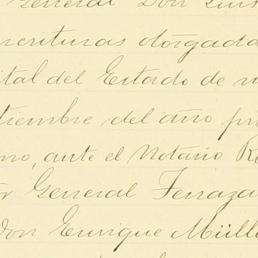 General Don Luis
scrituras otorgada
ital del Estado de
tiembre del año
no, ante el Notario R
General Terraza
Don Enrique Müll